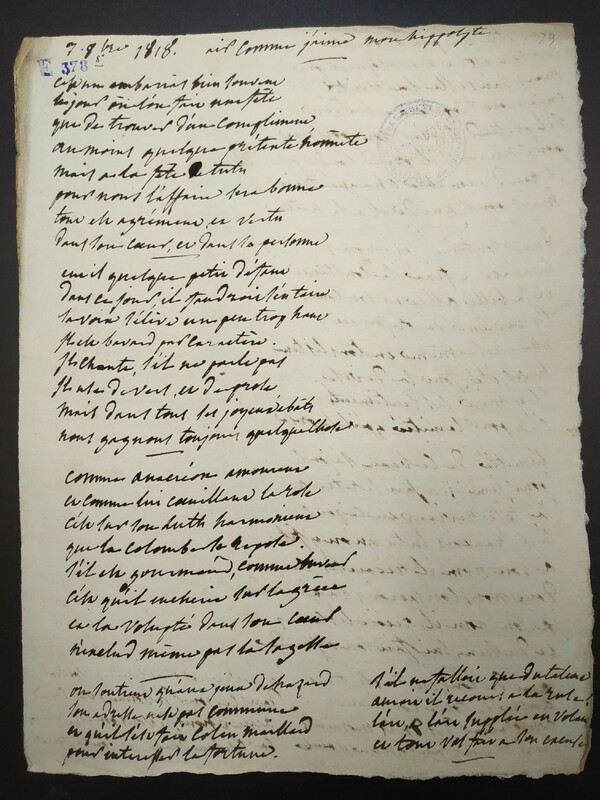 7. 8bre 1818. air comme j'aime mon hippolyte
39
E 378
c'est un embarras bien souvent
les jours où l'on fait une fete
que de trouver d'un compliment
au moins quelque prétexte honnete
mais a la fete de tutu
pour nous l'affaire sera bonne
tout est agrément, et vertu
dans son cœur, et dans la personne
eut il quelque petit défaut
dans ce jour, il faudroit s'en taire
sa voix s'élève un peu trop haut
Il est bavard par caractère.
Il chante, s'il ne parle pas
Il use de vers, et de prose
mais dans tous ses joyeux ébats
nous gagnons toujours quelque chose
comme anacréon amoureux
et comme lui cœuillant la rose
c'est sur son luth harmonieux
que la colombe se repose.
s'il est gourmand, comme
c'est qu'il encherit sur la grèce
et la volupté dans son cœur
n'exclud même pas la sagesse
on soutient qu'aux jeux de hazard
son adresse n'est pas commune
et qu'il sait faire Colin maillard
pour interesser la fortune.
s'il ne falloit que du talent
auroit il recours a la ruse
l'art a
et tout